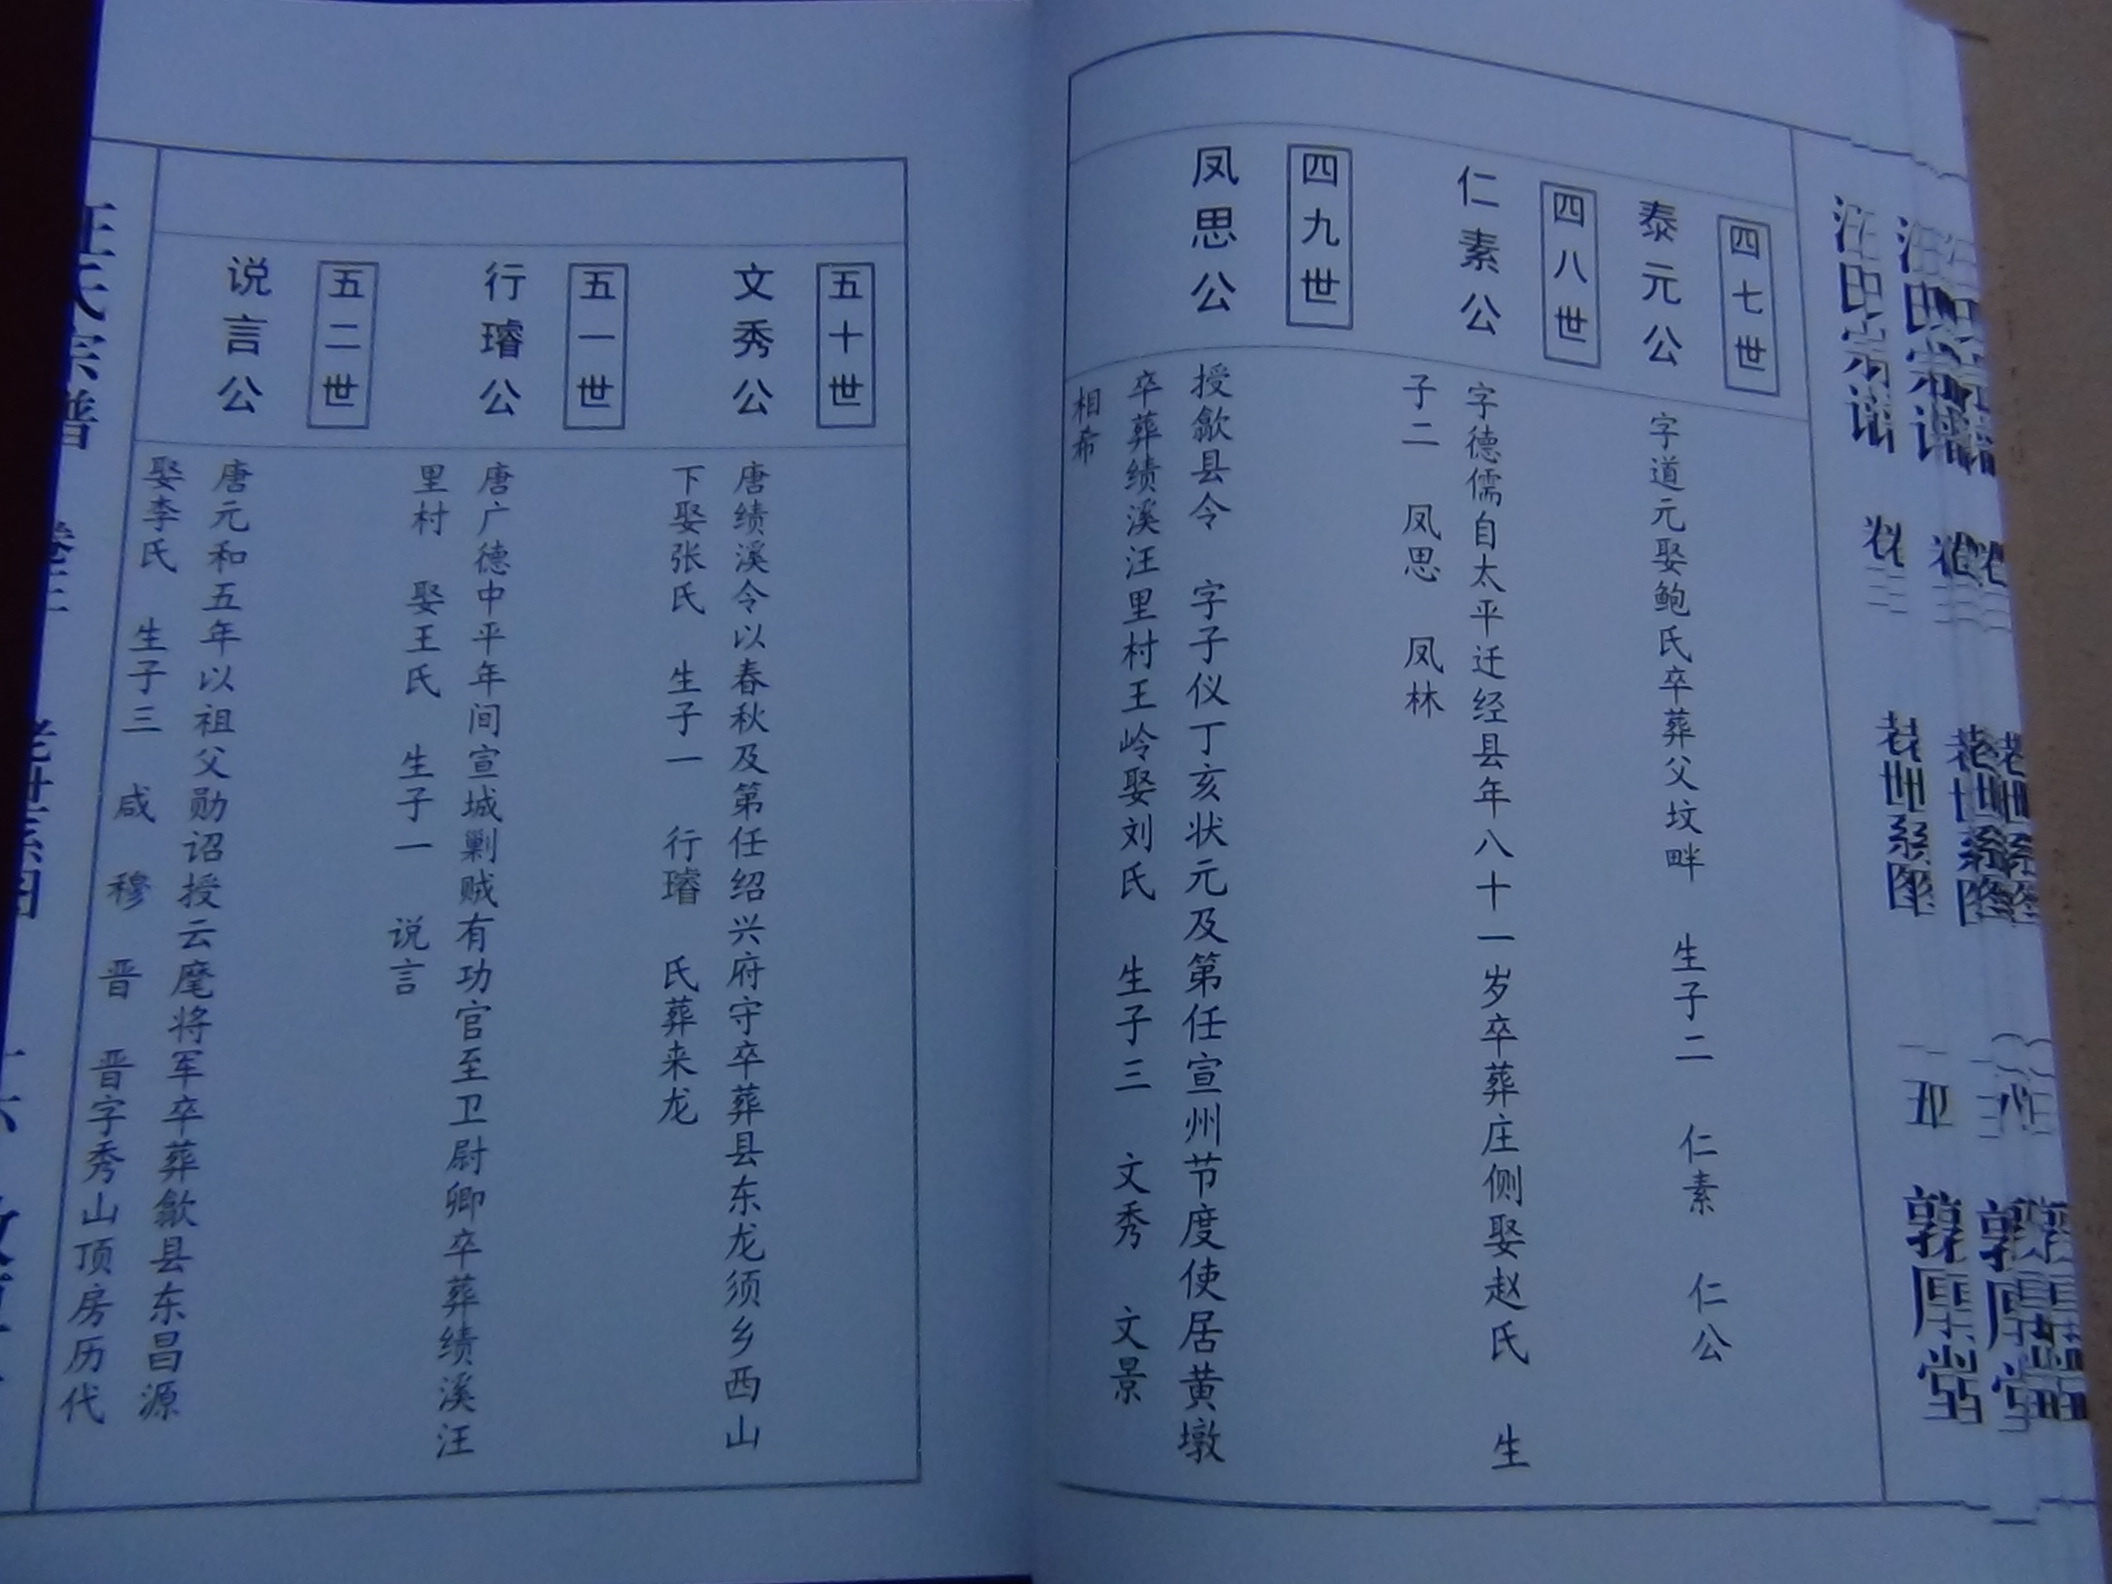 四七世
泰元公
字道元娶鲍氏卒葬父坟畔 生子二 仁素 仁公
四八世
仁素公
字德儒自太平迁经县年八十一岁卒葬庄侧娶赵氏 生
子二 凤思 凤林
四九世
凤思公
授歙县令 字子仪丁亥状元及第任宣州节度使居黄墩
卒葬绩溪汪里村王岭娶刘氏 生子三 文秀 文景
相希
五十世
文秀公
唐绩溪令以春秋及第任绍兴府守卒葬县东龙须乡西山
下娶张氏 生子一 行璿 氏葬来龙
五一世
行璿公
唐广德中平年间宣城剿贼有功官至卫尉卿卒葬绩溪汪
里村 娶王氏 生子一 说言
五二世
说言公
唐元和五年以祖父勋诏授云麾将军卒葬歙县东昌源
娶李氏 生子三 咸 穆 晋 晋字秀山顶房历代
汪氏宗谱 卷三 老世系图